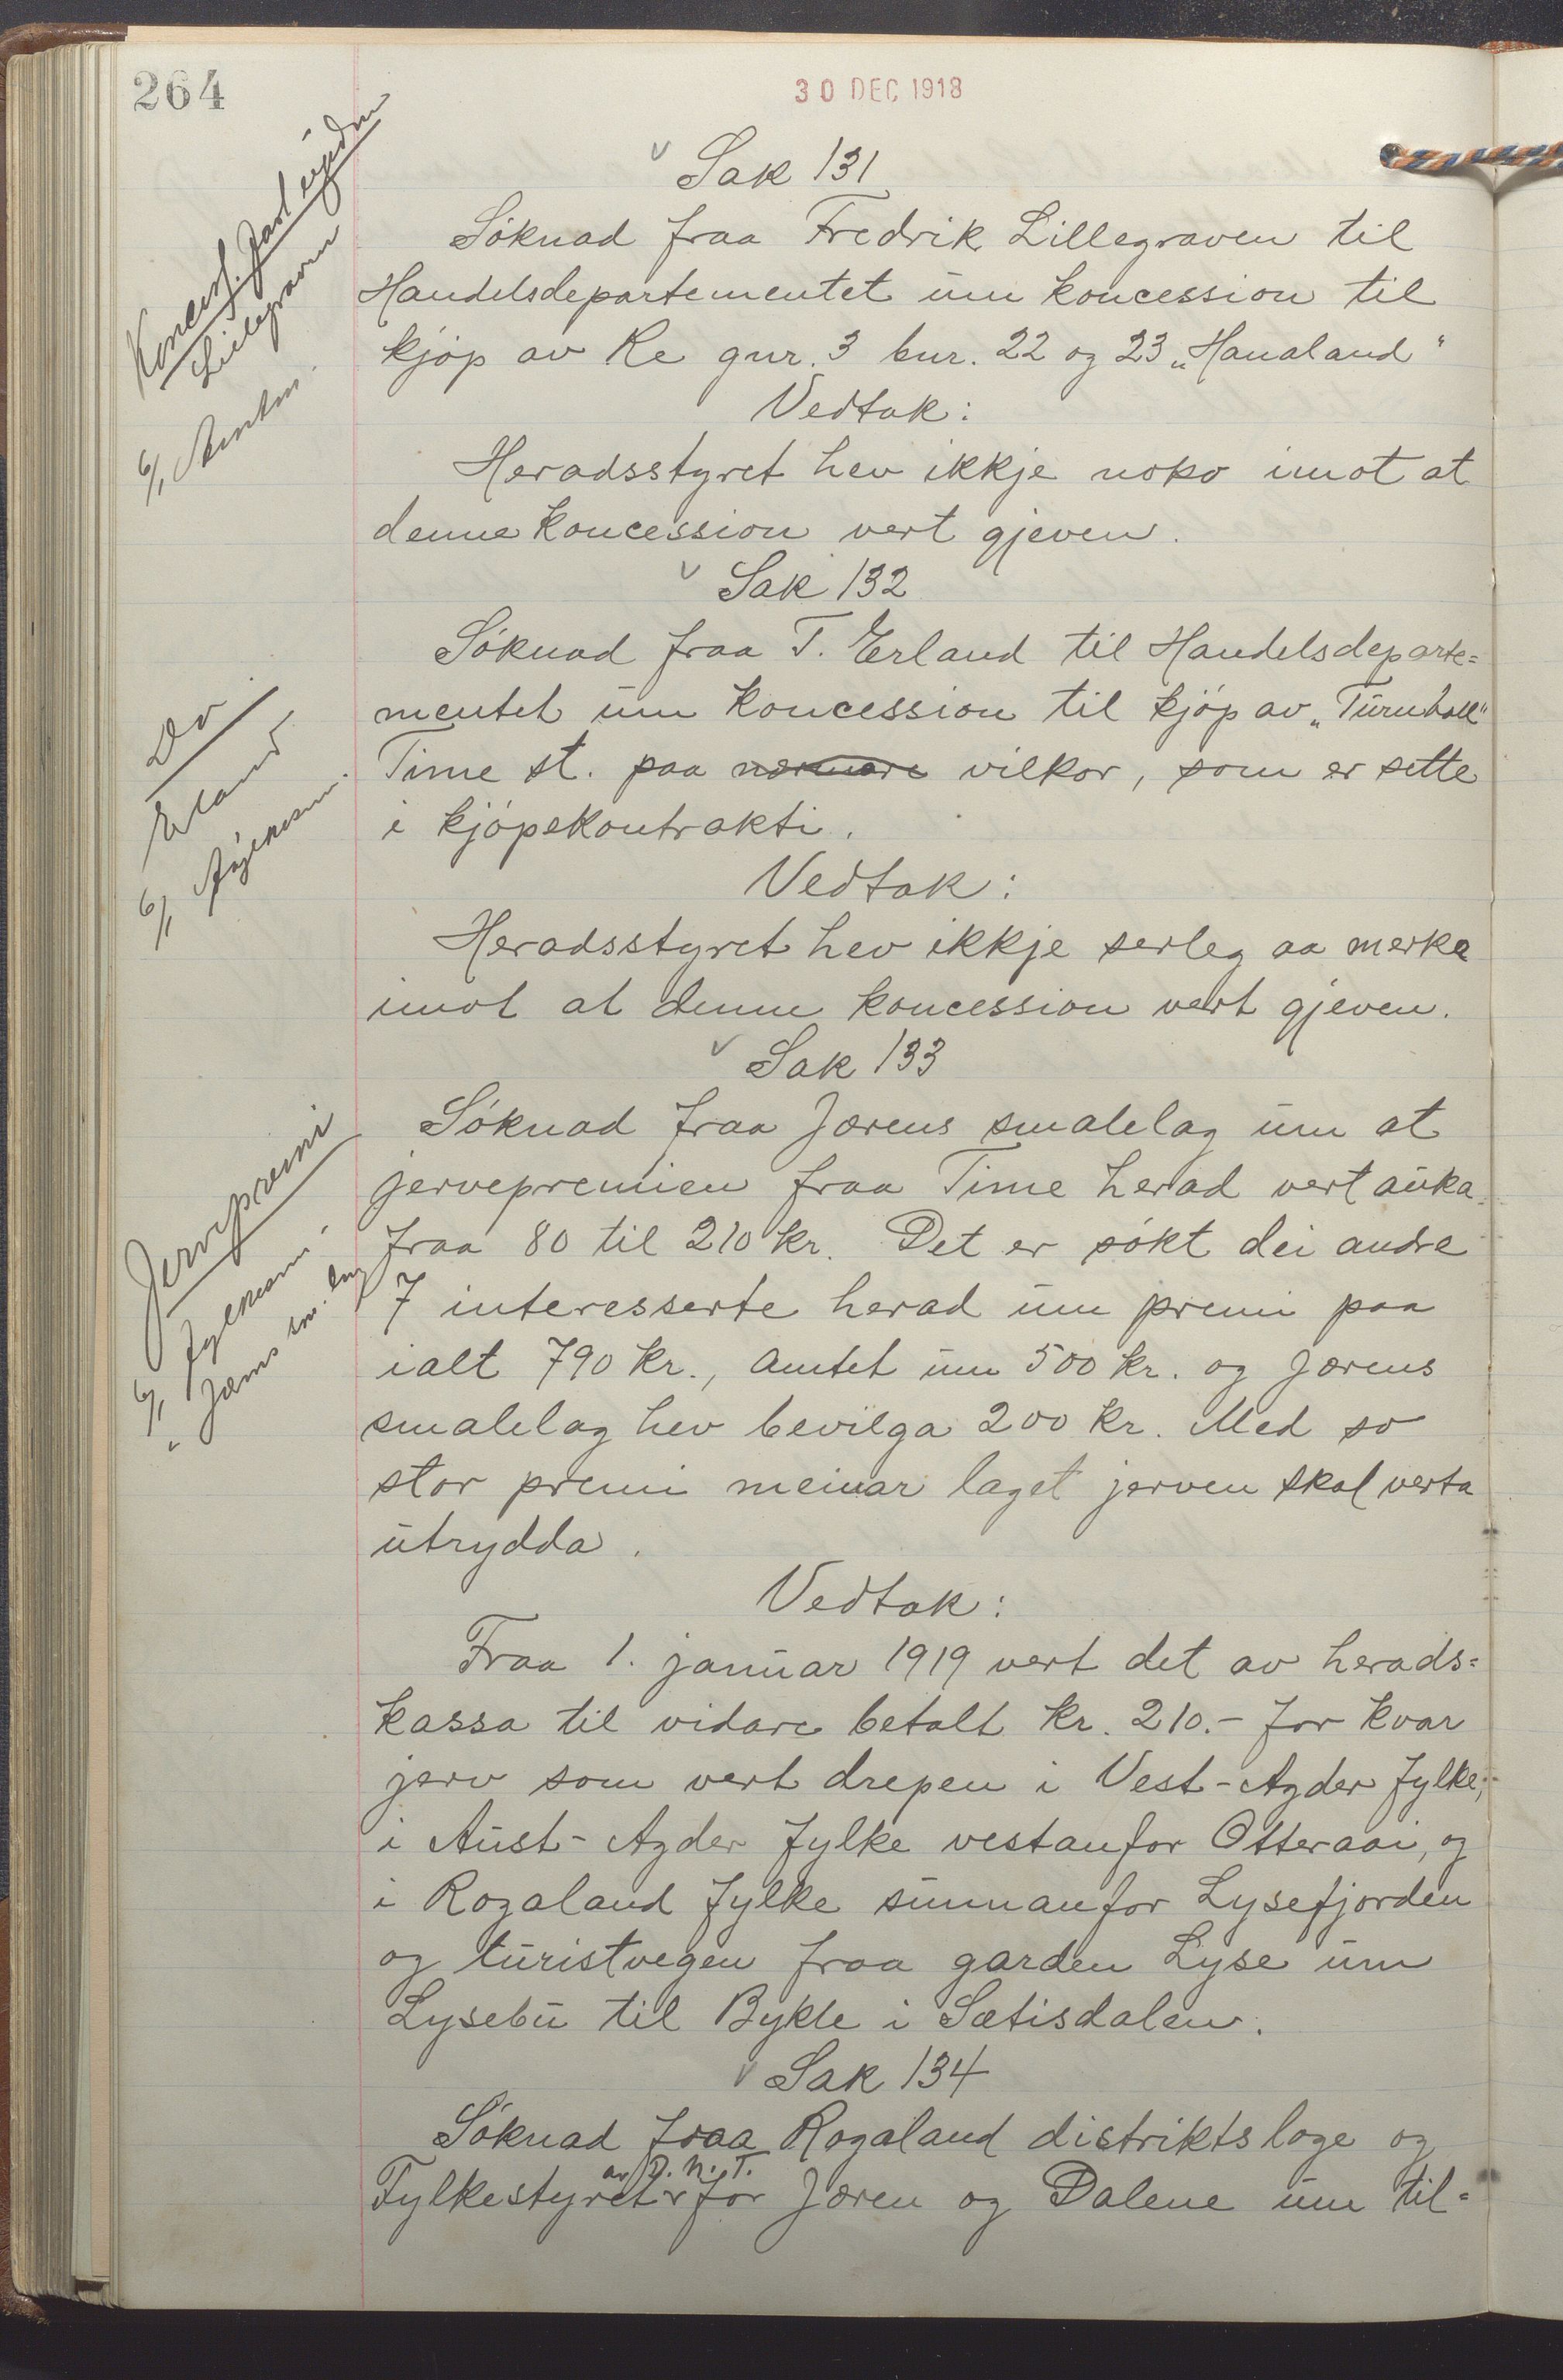 264
30 DEC 1918
Sak 131
Søknad fraa Fredrik Lillegraven til
Handelsdepartementet um koncession til
kjøp av Re gnr. 3 bnr. 22 og 23 „Hanaland"
Vedtak:
Heradsstyret hev ikkje noko imot at
denne koncession vert gjeven.
Sak 132
Søknad fraa T. Erland til Handelsdeparte=
mentet um koncession til kjøp av „Turnhall"
Time st. paa nærmare vilkor, som er sette
i kjøpekontrakti.
Do
Erland
6/1
Vedtak:
Heradsstyret hev ikkje serleg aa merka
imot at denne koncession vert gjeven.
Sak 133
Søknad fraa Jærens smalelag um at
jervepremien fraa Time herad vert auka
fraa 80 til 210 kr. Det er søkt dei andre
7 interesserte herad um premi paa
ialt 790 kr., Amtet um 500 kr. og Jærens
smalelag hev bevilga 200 kr. Med so
stor premi meinar laget jerven skal verta
utrydda.
Jervepremi
6/1 Fylkesm.
" Jærens sm. lag
Vedtak:
Fraa 1. januar 1919 vert det av herads=
kassa til vidare betalt kr. 210.- for kvar
jerv som vert drepen i Vest-Agder fylke,
i Aust-Agder fylke vestanfor Otteraai, og
i Rogaland fylke sunnanfor Lysefjorden
og turistvegen fraa garden Lyse um
Lysebu til Bykle i Sætisdalen.
Sak 134
Søknad fraa Rogaland distriktsloge og
Fylkestyret av D. N. T. for Jæren og Dalene um til=